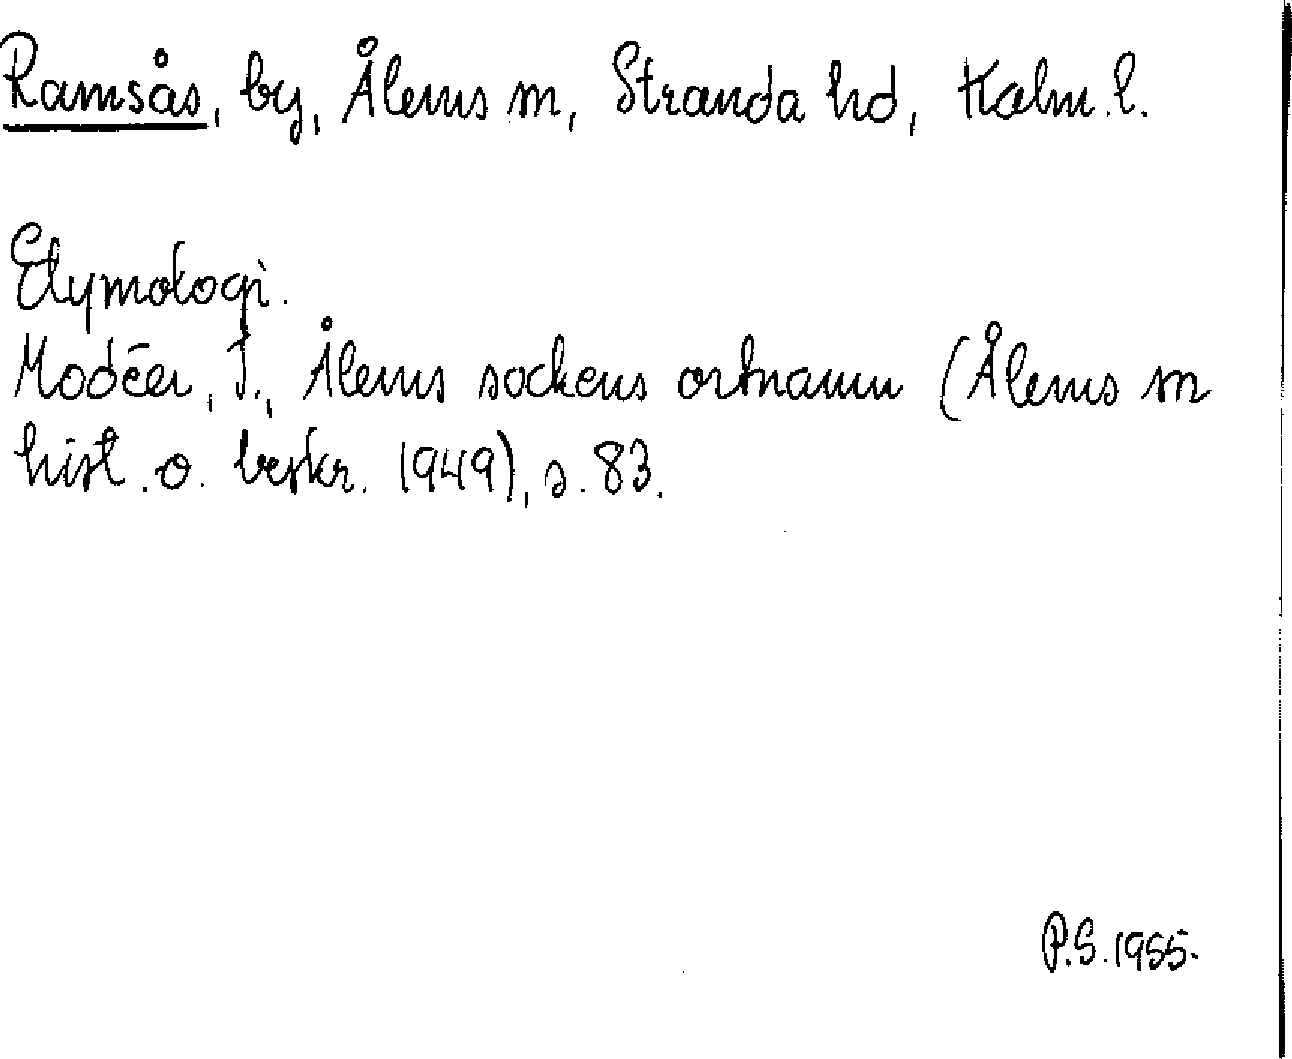 Ramsås, by, Ålems sn, Stranda hd, Kalm. l.
Etymologi.
Modéer, I., Ålems sockens ortnamn (Ålems sn
hist. o. beskr. 1949), s. 83.
P.S. 1955.